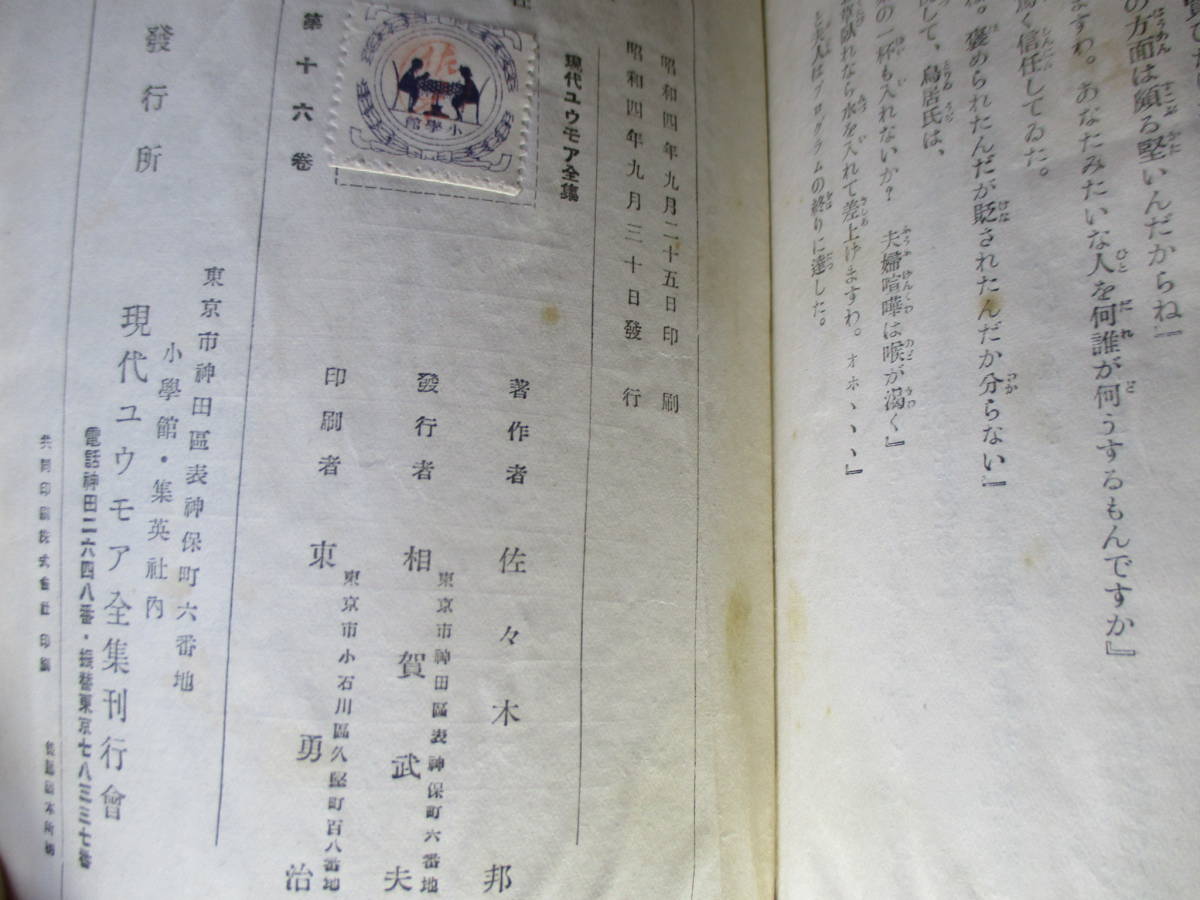 の方面は頗る堅いんだからね』
ますわ。あなたみたいな人を何誰が何うするもんですか』
く信任してゐた。
。褒められたんだが貶されたんだか分らない』
して、鳥居氏は、
の一杯も入れないか？　夫婦喧嘩は喉が渇く』
れなら水を入れて差上げますわ。オホヽヽヽ』
と夫人はプログラムの終りに達した。
昭和四年九月二十五日印刷
昭和四年九月三十日發行
現代ユウモア全集
第十六卷
小學館
著作者　佐々木邦
東京市神田區表神保町六番地
發行者　相賀武夫
東京市小石川區久堅町百八番地
印刷者　東勇治
發行所
東京市神田區表神保町六番地
小學館・集英社內
現代ユウモア全集刊行會
電話神田二六四八番・振替東京七八三三七番
共同印刷株式會社 印刷